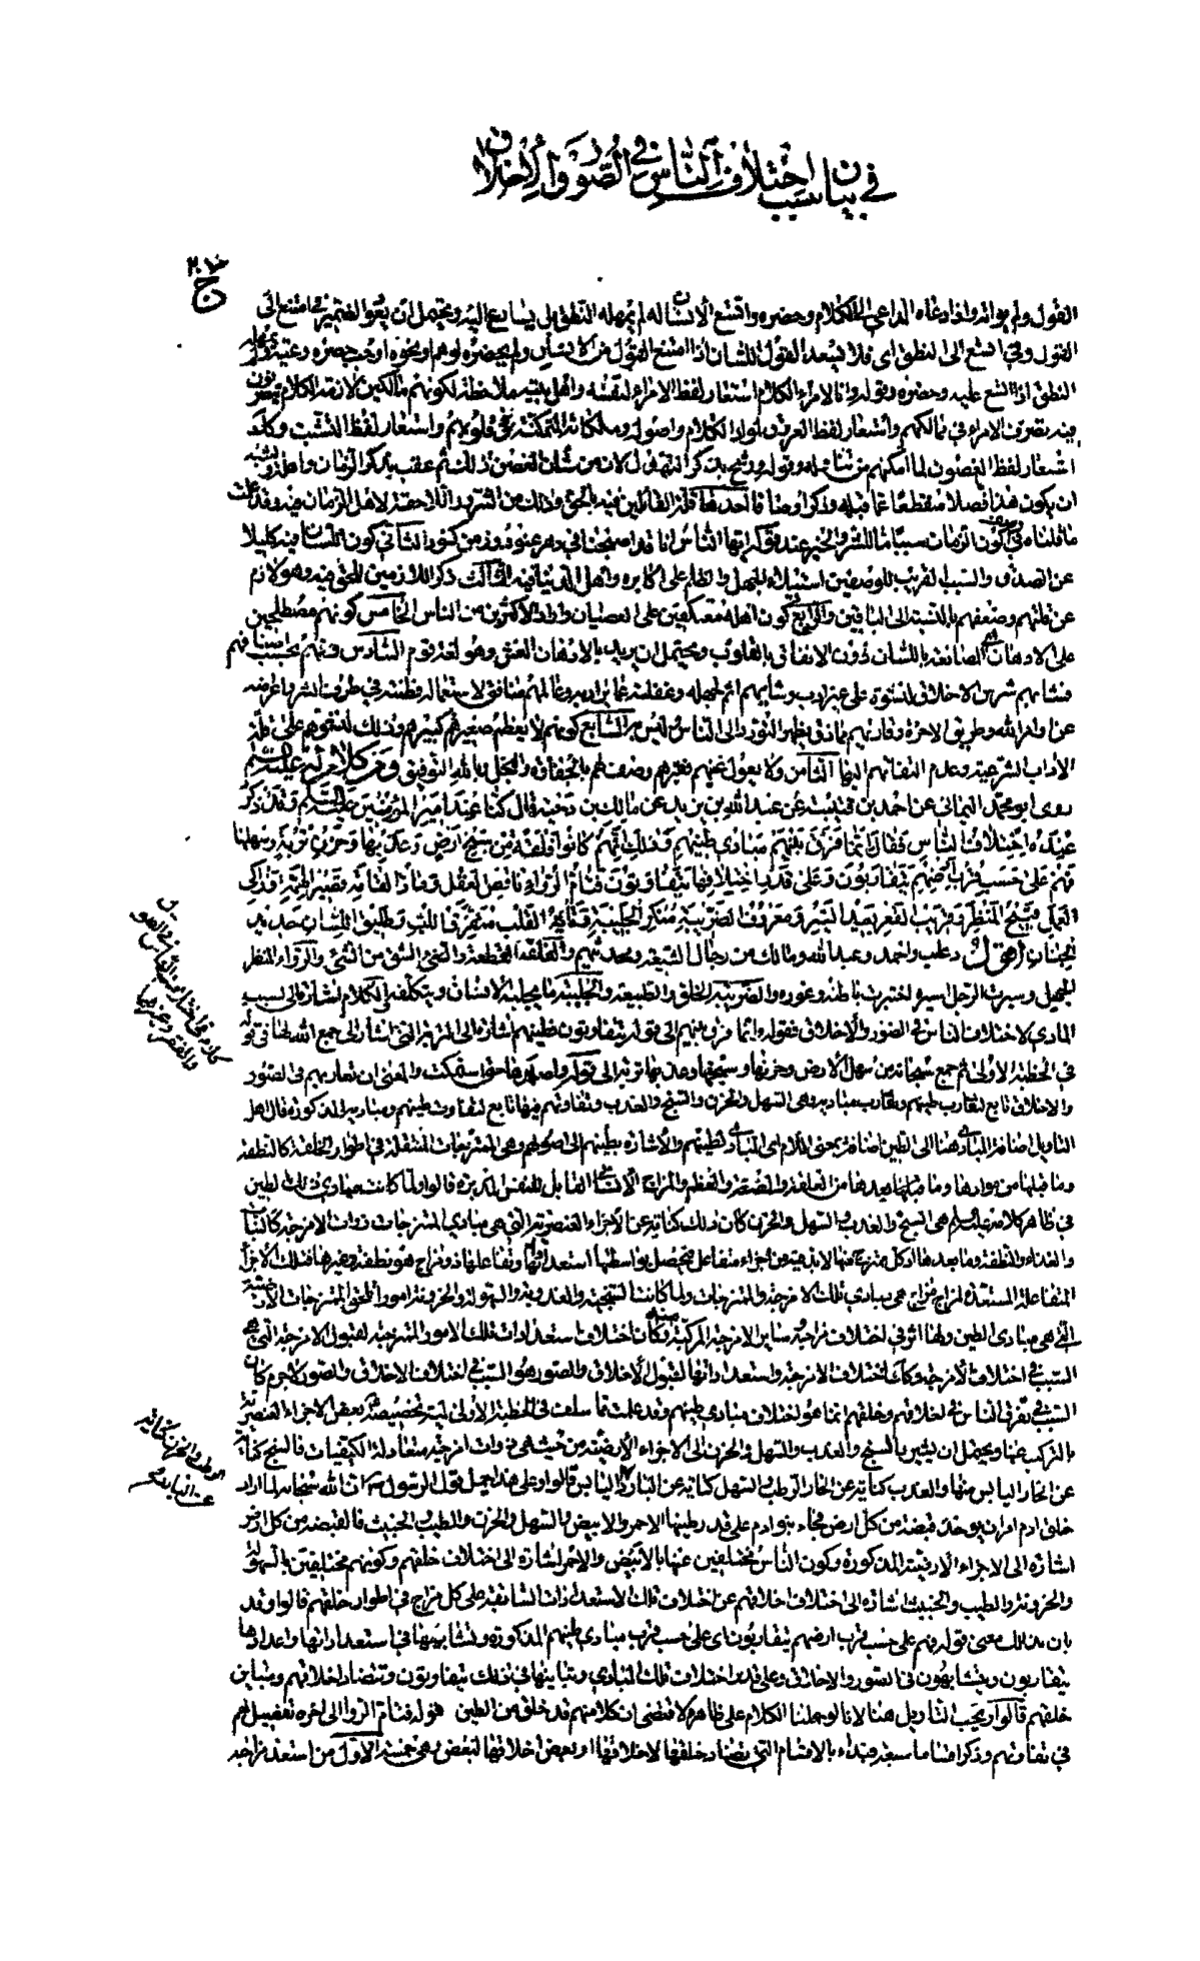 في بيان سبب اختلاف الناس في الصور والأخلاق
ج
القول ولم يواته واذا دعاه الداعي الى الكلام وحضره واتسع الانسان له لم يمهله النطق بل يسارع اليه ويحتمل ان يعود الضمير في امتنع الى
القول وفي اتسع الى النطق اى فلا يسعد القول اللسان اذا امتنع القول من الانسان ولم يحضره لوهم او نحوه اوجب حصره وعيه ولم يمهله
النطق اذا اتسع عليه وحضره وقوله وانا لامراء الكلام استعار لفظ الامراء لنفسه واهل بيته ملاحظة لكونهم مالكين لازمة الكلام يتصرفون
فيه تصرف الامراء في ممالكهم واستعار لفظ العروق لمواد الكلام واصوله وملكاته المتمكنة في قلوبهم واستعار لفظ التنشب وكذلك
استعار لفظ الغصون لما امكنهم من تناوله وقوله ورشح بذكر التهدل لان من شأن الغصن ذلك ثم عقب بذكر الزمان واهله
ان يكون هذا فصلا منقطعا عما قبله وذكر اوصافا احدها قلة القائلين فيه بالحق وذلك من الشرور اللاحقة لاهل الزمان فيه وقد علمت
ما قلناه في كون الزمان سببا ما للشر والخير عند قوله ايها الناس انا قد اصبحنا في دهر عنود وزمن كنود الثاني كون اللسان فيه كليلا
عن الصدق والسبب القريب للوصفين استيلاء الجهل والظلم على اكابره واهل الدنيا فيه الثالث ذكر اللازمين للحق فيه وهو لازم
عن قلتهم وضعفهم بالنسبة الى الباقين والرابع كون اهله معتكفين على العصيان واراد الاكثرين من الناس الخامس كونهم مصطلحين
على الادهان اى المصانعة باللسان دون الاتفاق بالقلوب ويحتمل ان يريد بالادهان الغش وهو لغة قوم السادس وصفهم بحسب اصنافهم
فشابهم شرس الاخلاق لنشوه على غير ادب وشايبهم اثم لجهله وغفلته عما يراد به وعالمهم منافق لاستعماله فطنته في طرق الشر واعراضه
عن اوامر الله وطريق الاخرة وقاريهم مماذق يظهر التودد الى الناس السابع كونهم لا يعظم صغيرهم كبيرهم وذلك لنشوهم على قلة
الاداب الشرعية وعدم التفاتهم اليها الثامن ولا يعول غنيهم فقيرهم وصف لهم بالجفاوة والبخل وبالله التوفيق ومن كلام له عليه السلام
روى ابو محمد اليماني عن احمد بن قتيبة عن عبد الله بن يزيد عن مالك بن دحية قال كنا عند امير المؤمنين عليه السلم وقد ذكر
عنده اختلاف الناس فقال انما فرق بينهم مبادى طينهم وذلك انهم كانوا فلقة من سبخ ارض وعذبها وحزن تربة وسهلها
فهم على حسب قرب ارضهم يتقاربون وعلى قدر اختلافها يتفاوتون فتام الرواء ناقص العقل وماد القامة قصير الهمة وزاكى
العمل قبيح المنظر وقريب القعر بعيد السبر ومعروف الضريبة منكر الجليبة وتائه القلب متفرق اللب وطليق اللسان حديد
الجنان اقول دعلب واحمد وعبد الله ومالك من رجال الشيعة ومحدثيهم والفلقة القطعة والشق من الشئ والرواء المنظر
الجميل وسبرت الرجل اسبره اختبرت باطنه وغوره والضريبة الخلق والطبيعة والجليبة ما يجلبه الانسان ويتكلفه الكلام اشارة الى السبب
المادى لاختلاف الناس في الصور والاخلاق فقوله انما فرق بينهم الى قوله يتفاوتون فطينهم اشارة الى التربة التى اشار الى جمع الله لها في قوله
في الخطبة الاولى ثم جمع سبحانه من سهل الارض وحزنها وسبخها وعذبها تربة الى قوله واصلدها حتى استمسكت والمعنى ان تقاربهم في الصور
والاخلاق تابع لتقارب طينهم وتقارب مباديه وهى السهل والحزن والسبخ والعذب وتفاوتهم فيها تابع لتفاوت طينهم ومباديه المذكورة قال اهل
التاويل اضافة المبادى هنا الى الطين اضافة بمعنى اللام اى المبادى لطينهم والاشارة بطينهم الى اصولهم وهى الممتزجات المنتقلة في اطوار الخلقة كالنطفة
وما قبلها من موادها وما بعدها من العلقة والمضغة والعظم والمزاج الانسانى القابل للنفس المدبرة قالوا ولما كانت مبادى ذلك الطين
في ظاهر كلامه عليه السلام هى السبخ والعذب والسهل والحزن كان ذلك كناية عن الاجزاء العنصرية التى هى مبادى الممتزجات ذوات الامزجة كالنبات
والغذاء والنطفة وما بعدها اذ كل ممتزج منها لابد فيه من اجزاء متفاعلة يحصل بواسطتها استعداد وتفاعلها ذو مزاج هو نطفة وغيرها فتلك الاجزاء
المتفاعلة المستعدة لمزاج مزاج هى مبادى تلك الامزجة والممتزجات ولما كانت السبخية والعذوبة والسهولة والحزونة امورا تلحق الممتزجات الارضية
التى هى مبادى الطين ولها اثر في اختلاف مزاجه وساير الامزجة المركبة منه وكان اختلاف استعدادات تلك الامور الممتزجة لقبول الامزجة التى هى
السبب في اختلاف الامزجة وكان اختلاف الامزجة واستعداداتها لقبول الاخلاق والصور هو السبب في اختلاف الاخلاق والصور لاجرم كان
السبب في تفرق الناس في اخلاقهم وخلقهم انما هو اختلاف مبادى طينهم وقد علمت مما سلف في الخطبة الاولى لمية تخصيصه بعض الاجزاء العنصرية
بالتركيب عنها ويحتمل ان يشير بالسبخ والعذب والسهل والحزن الى الاجزاء الارضية من حيث هى ذوات امزجة متعادلة الكيفيات فالسبخ كناية
عن الحار اليابس منها والعذب كناية عن الحار الرطب والسهل كناية عن البارد واليابس قالوا وعلى هذا يحمل قول الرسول ص ان الله سبحانه لما اراد
خلق ادم امر ان يوخذ قبضة من كل ارض فجاء بنو ادم على قدر طينها الاحمر والابيض والسهل والحزن والطيب والخبيث فالقبضة من كل ارض
اشارة الى الاجزاء الارضية المذكورة وكون الناس مختلفين عنها بالابيض والاحمر اشارة الى اختلاف خلقهم وكونهم مختلفين بالسهولة
والحزونة والطيب والخبيث اشارة الى اختلاف اخلاقهم عن اختلاف تلك الاستعدادات السابقة على كل مزاج في اطوار خلقهم قالوا وقد
بان بذلك معنى قوله فهم على حسب قرب ارضهم يتقاربون اى على حسب قرب مبادى طينهم المذكورة وتشابهها في استعداداتها واعدادها
يتقاربون ويتشابهون في الصور والاخلاق وعلى قدر اختلاف تلك المبادى وتباينها في ذلك يتفاوتون وتتضاد اخلاقهم وتتباين
خلقهم قالوا ويجب التاويل هنا لانا لو حملنا الكلام على ظاهره لاقتضى ان كلا منهم قد خلق من الطين قوله فتام الرواء الى اخره تفصيل لهم
في تفاوتهم وذكر اقساما سبعة فبداء بالاقسام التى يتضاد خلقها لاخلاقها او بعض اخلاقها لبعض وهى خمسة الاول من استعد مزاجه